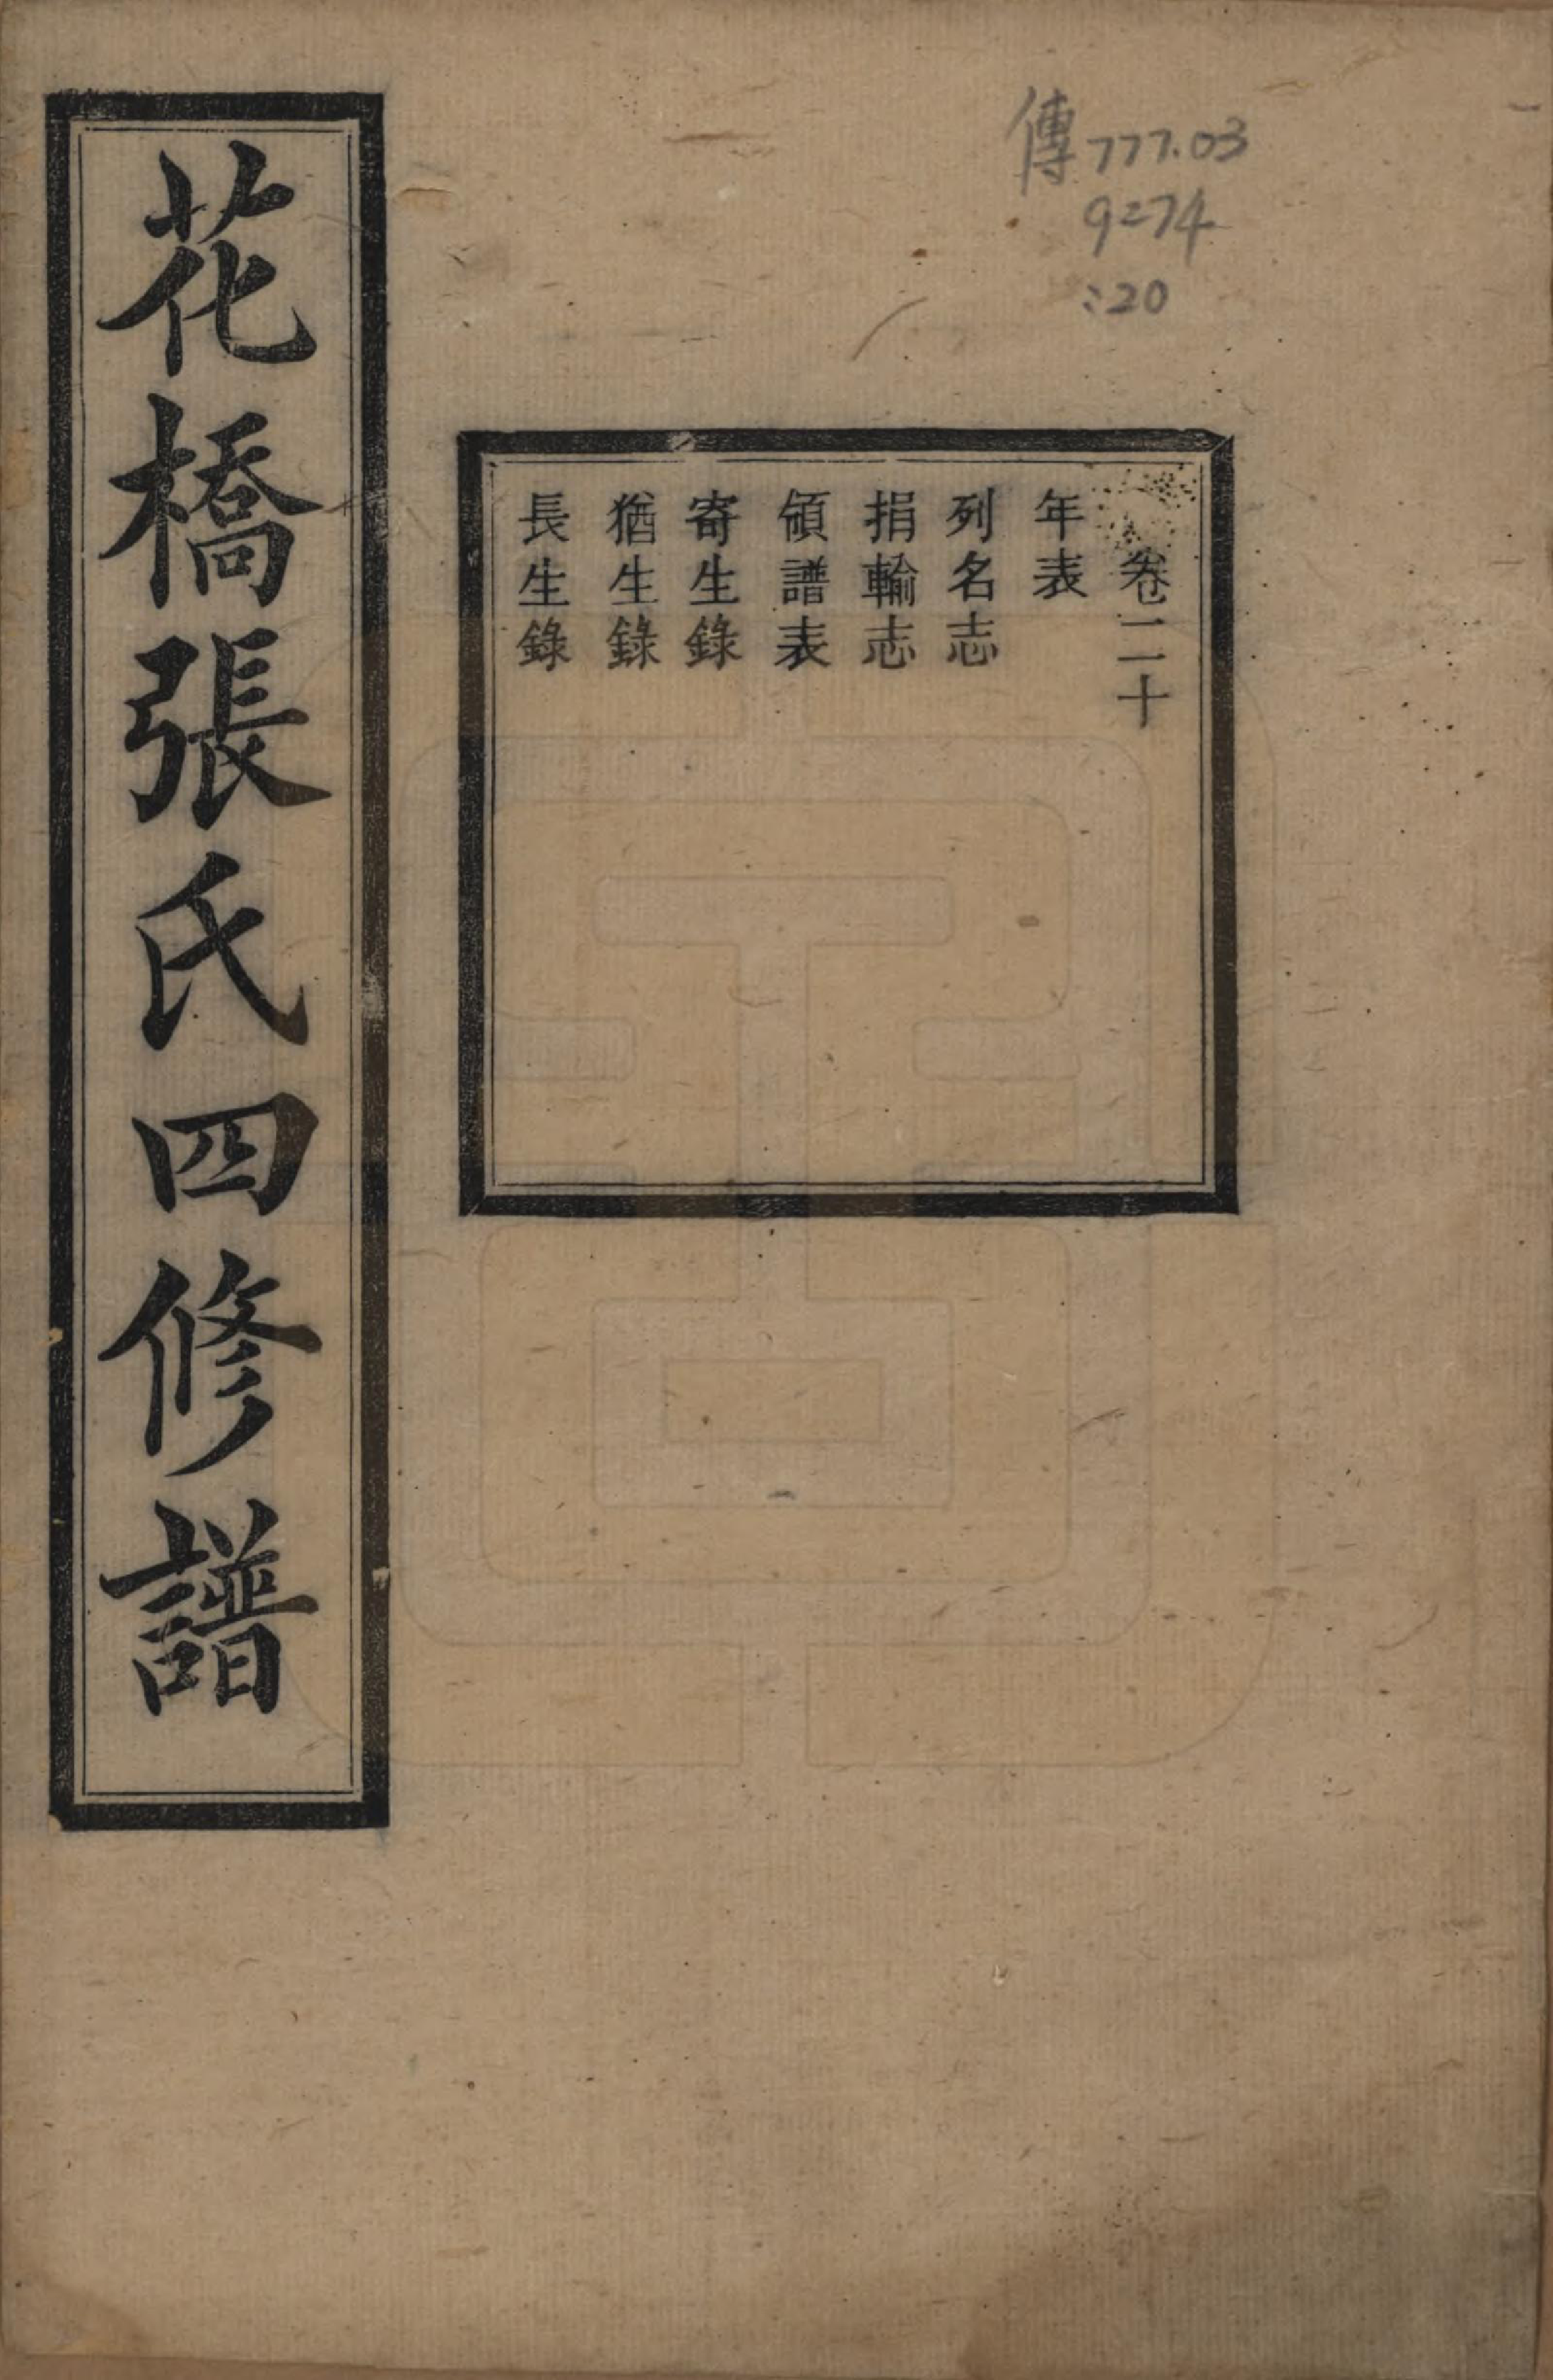 傳777.03
9274
:20
卷二十
年表
列名志
捐輸志
領譜表
寄生錄
猶生錄
長生錄
花橋張氏四修譜